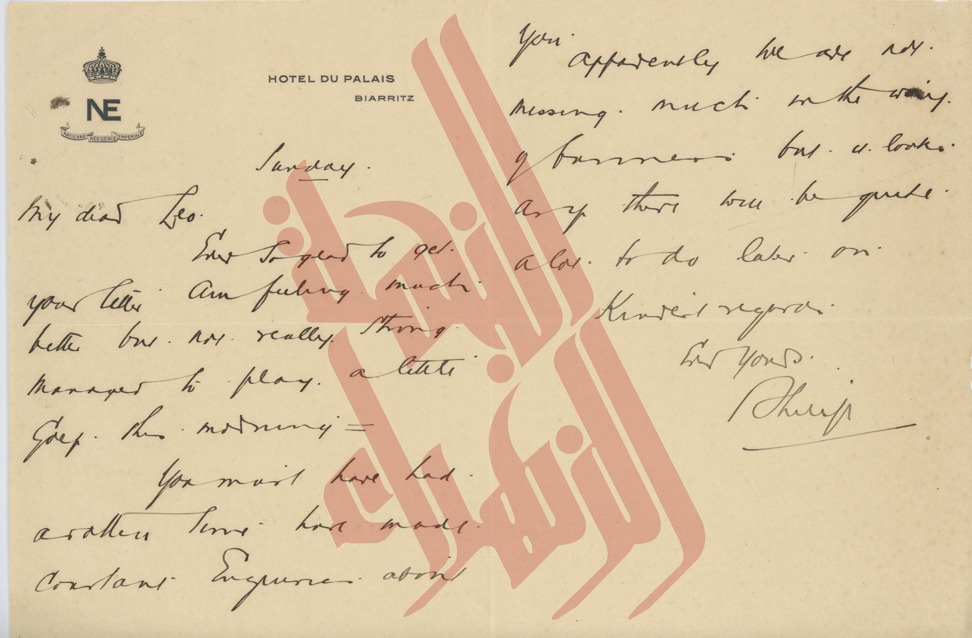 NE
ANCIENNE RÉSIDENCE IMPÉRIALE
HOTEL DU PALAIS
BIARRITZ
Sunday.
My dear Leo.
Ever so glad to get.
your letter Am feeling much
better but not really strong
managed to play a little
Golf this morning =
You must have had
a rotten time have made
constant Enquiries about
You apparently we are not
missing much in the way
of business but it looks
as if there will be quite
a lot to do later on
Kindest regards
Ever Yours.
Philip